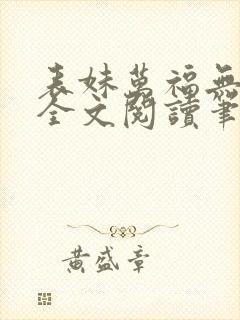 表妹萬福無
全文閱讀筆
黃盛章